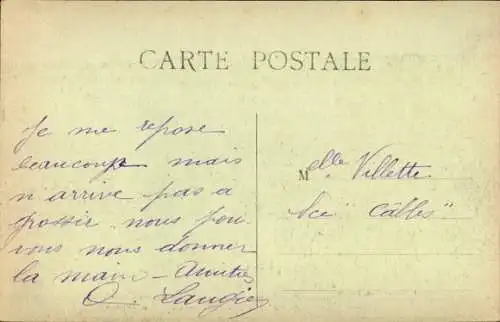 CARTE POSTALE
Je me repose
beaucoup mais
n'arrive pas à
grossir nous pou-
vons nous donner
la main - Amitiés
Melle Villette
"Câbles"